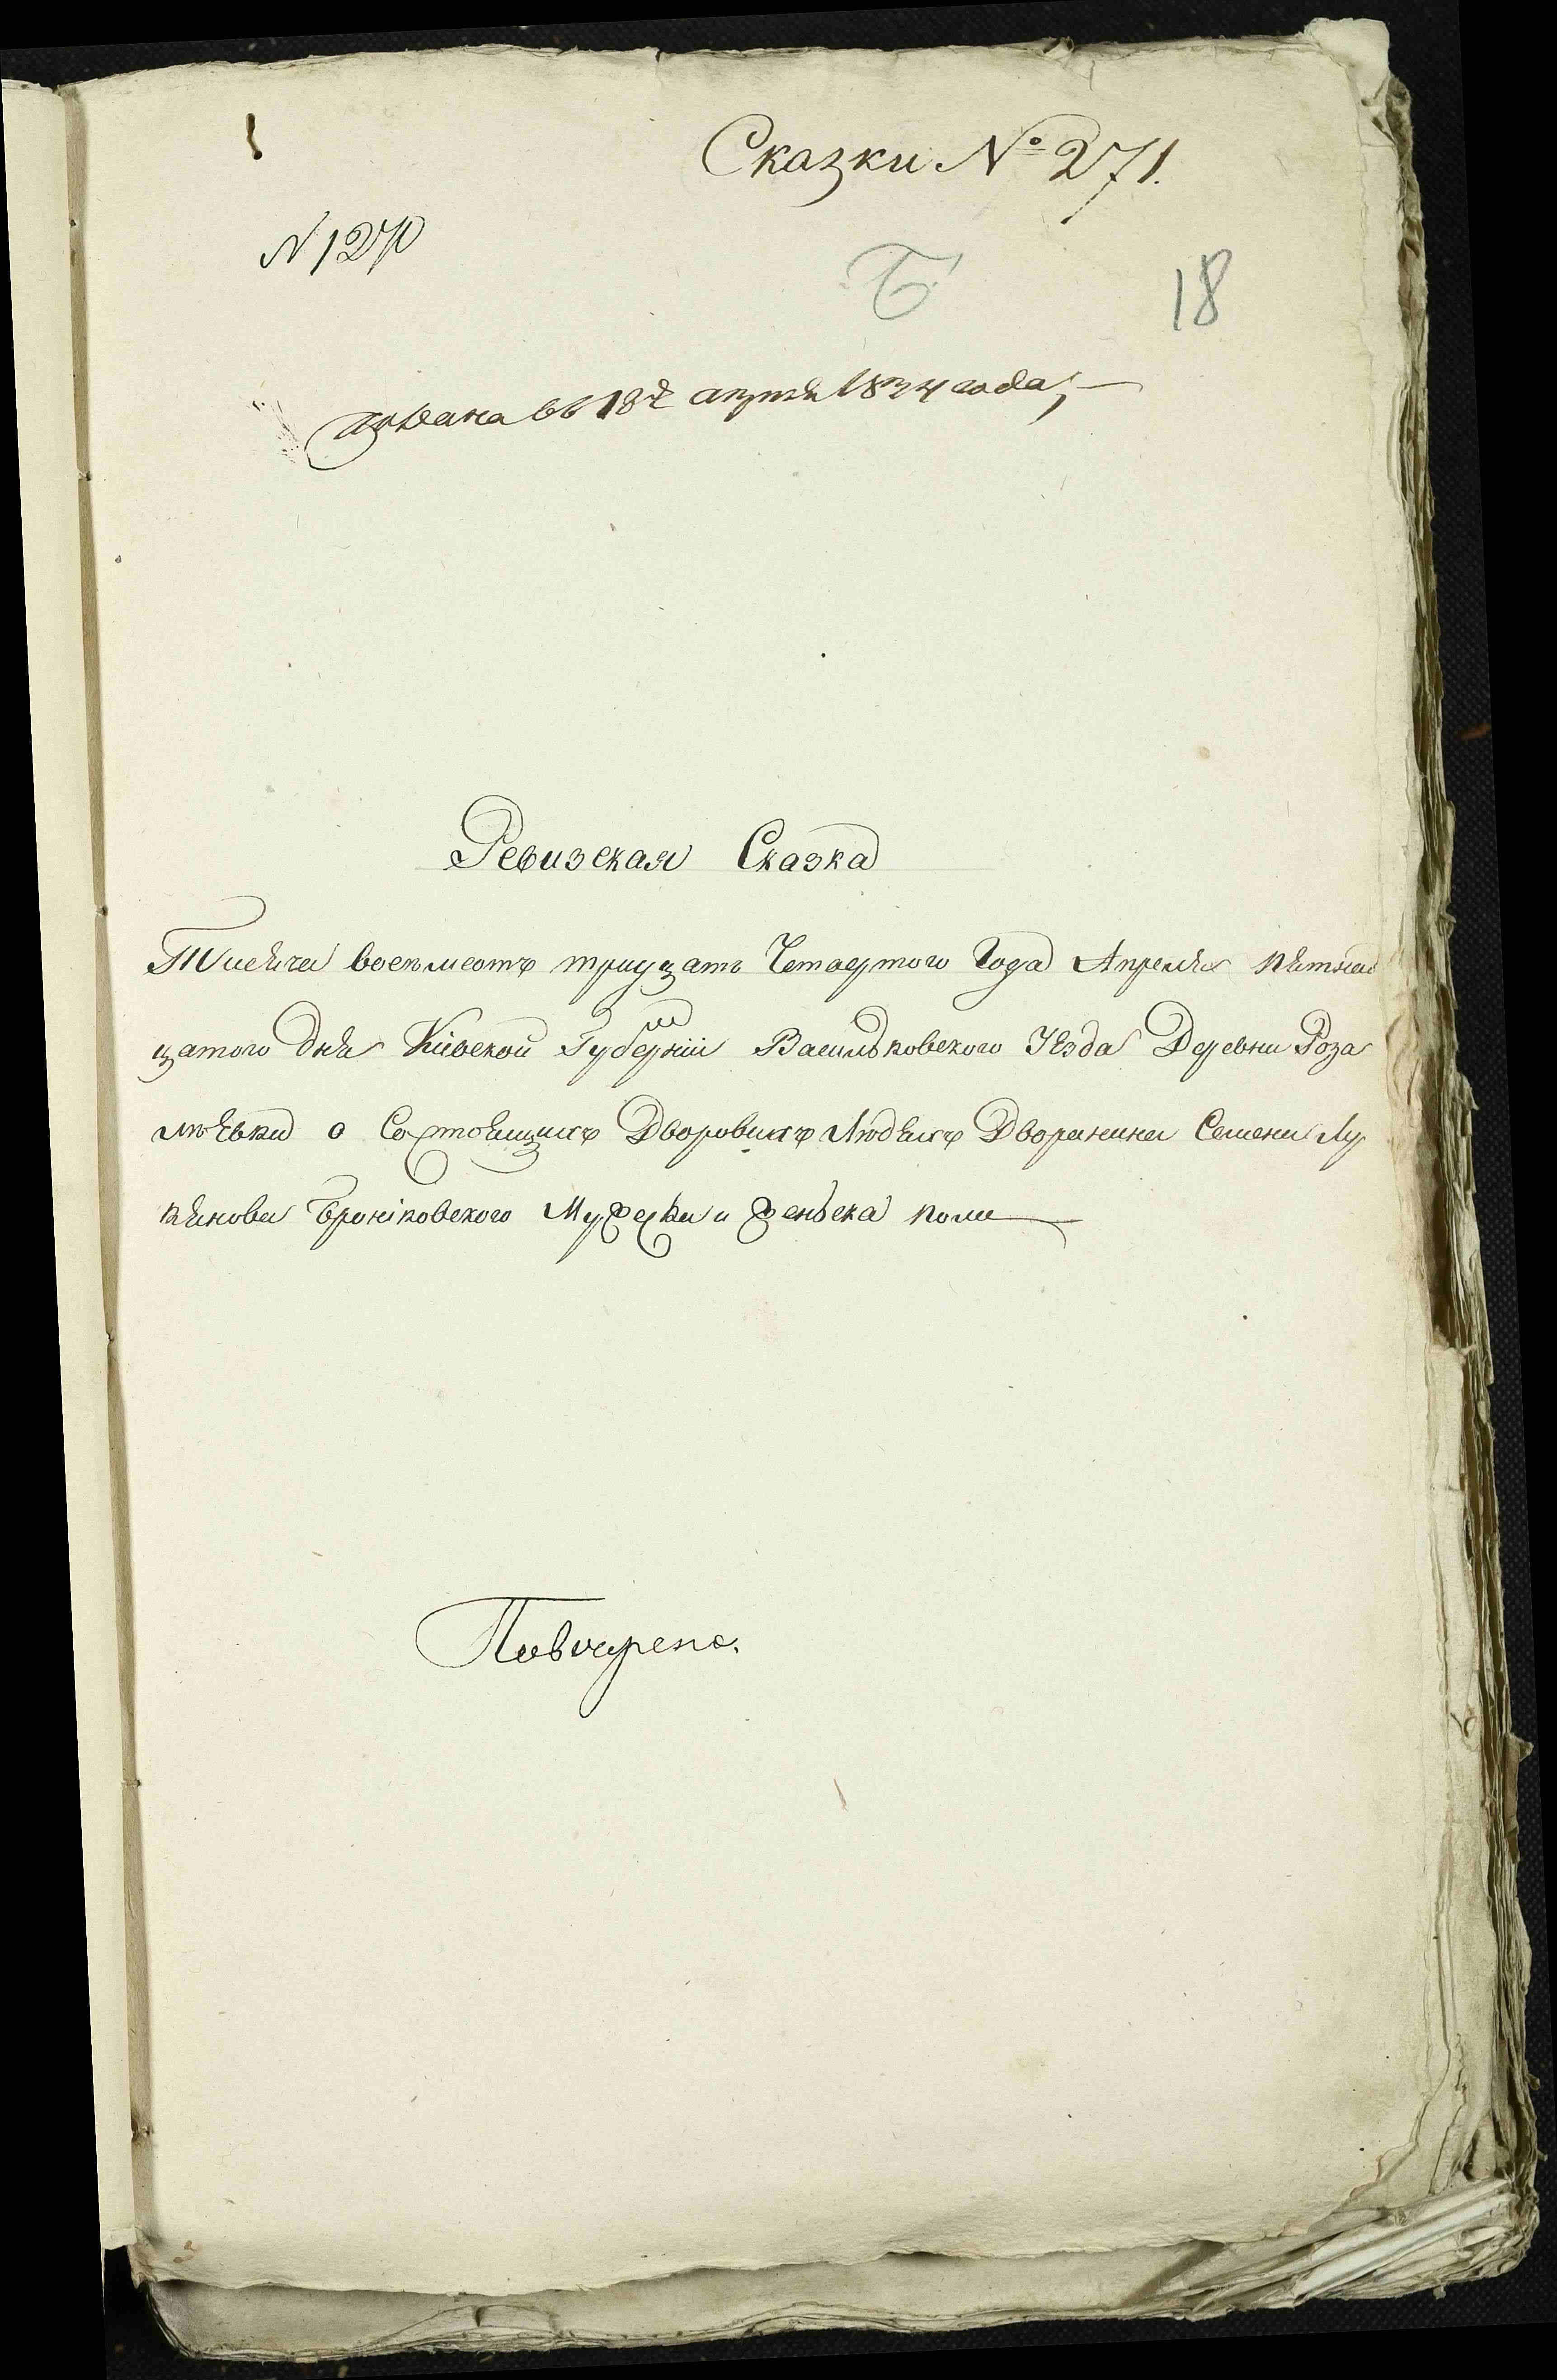 Сказки № 271.
N 1270
Б
18
подана въ 18й апреля 1834 года,
Ревизская Сказка
Тисяча восемсотъ тридцать Четвертого Года Апреля пятнад
цатого Дня Кіевской Губерніи Васильковского Уѣзда Деревни Роза
лѣевки о Состоящихъ Дворовихъ Людяхъ Дворянина Семена Лу
кянова Броніковского Мужеска и женьска пола